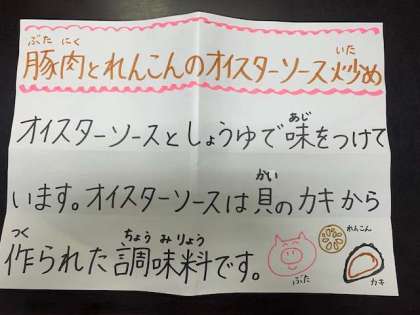 ぶたにく いた
豚肉とれんこんのオイスターソース炒め
あじ
オイスターソースとしょうゆで味をつけて
かい
います。オイスターソースは貝のカキから
つく ちょうみりょう
作られた調味料です。
れんこん
ぶた
カキ